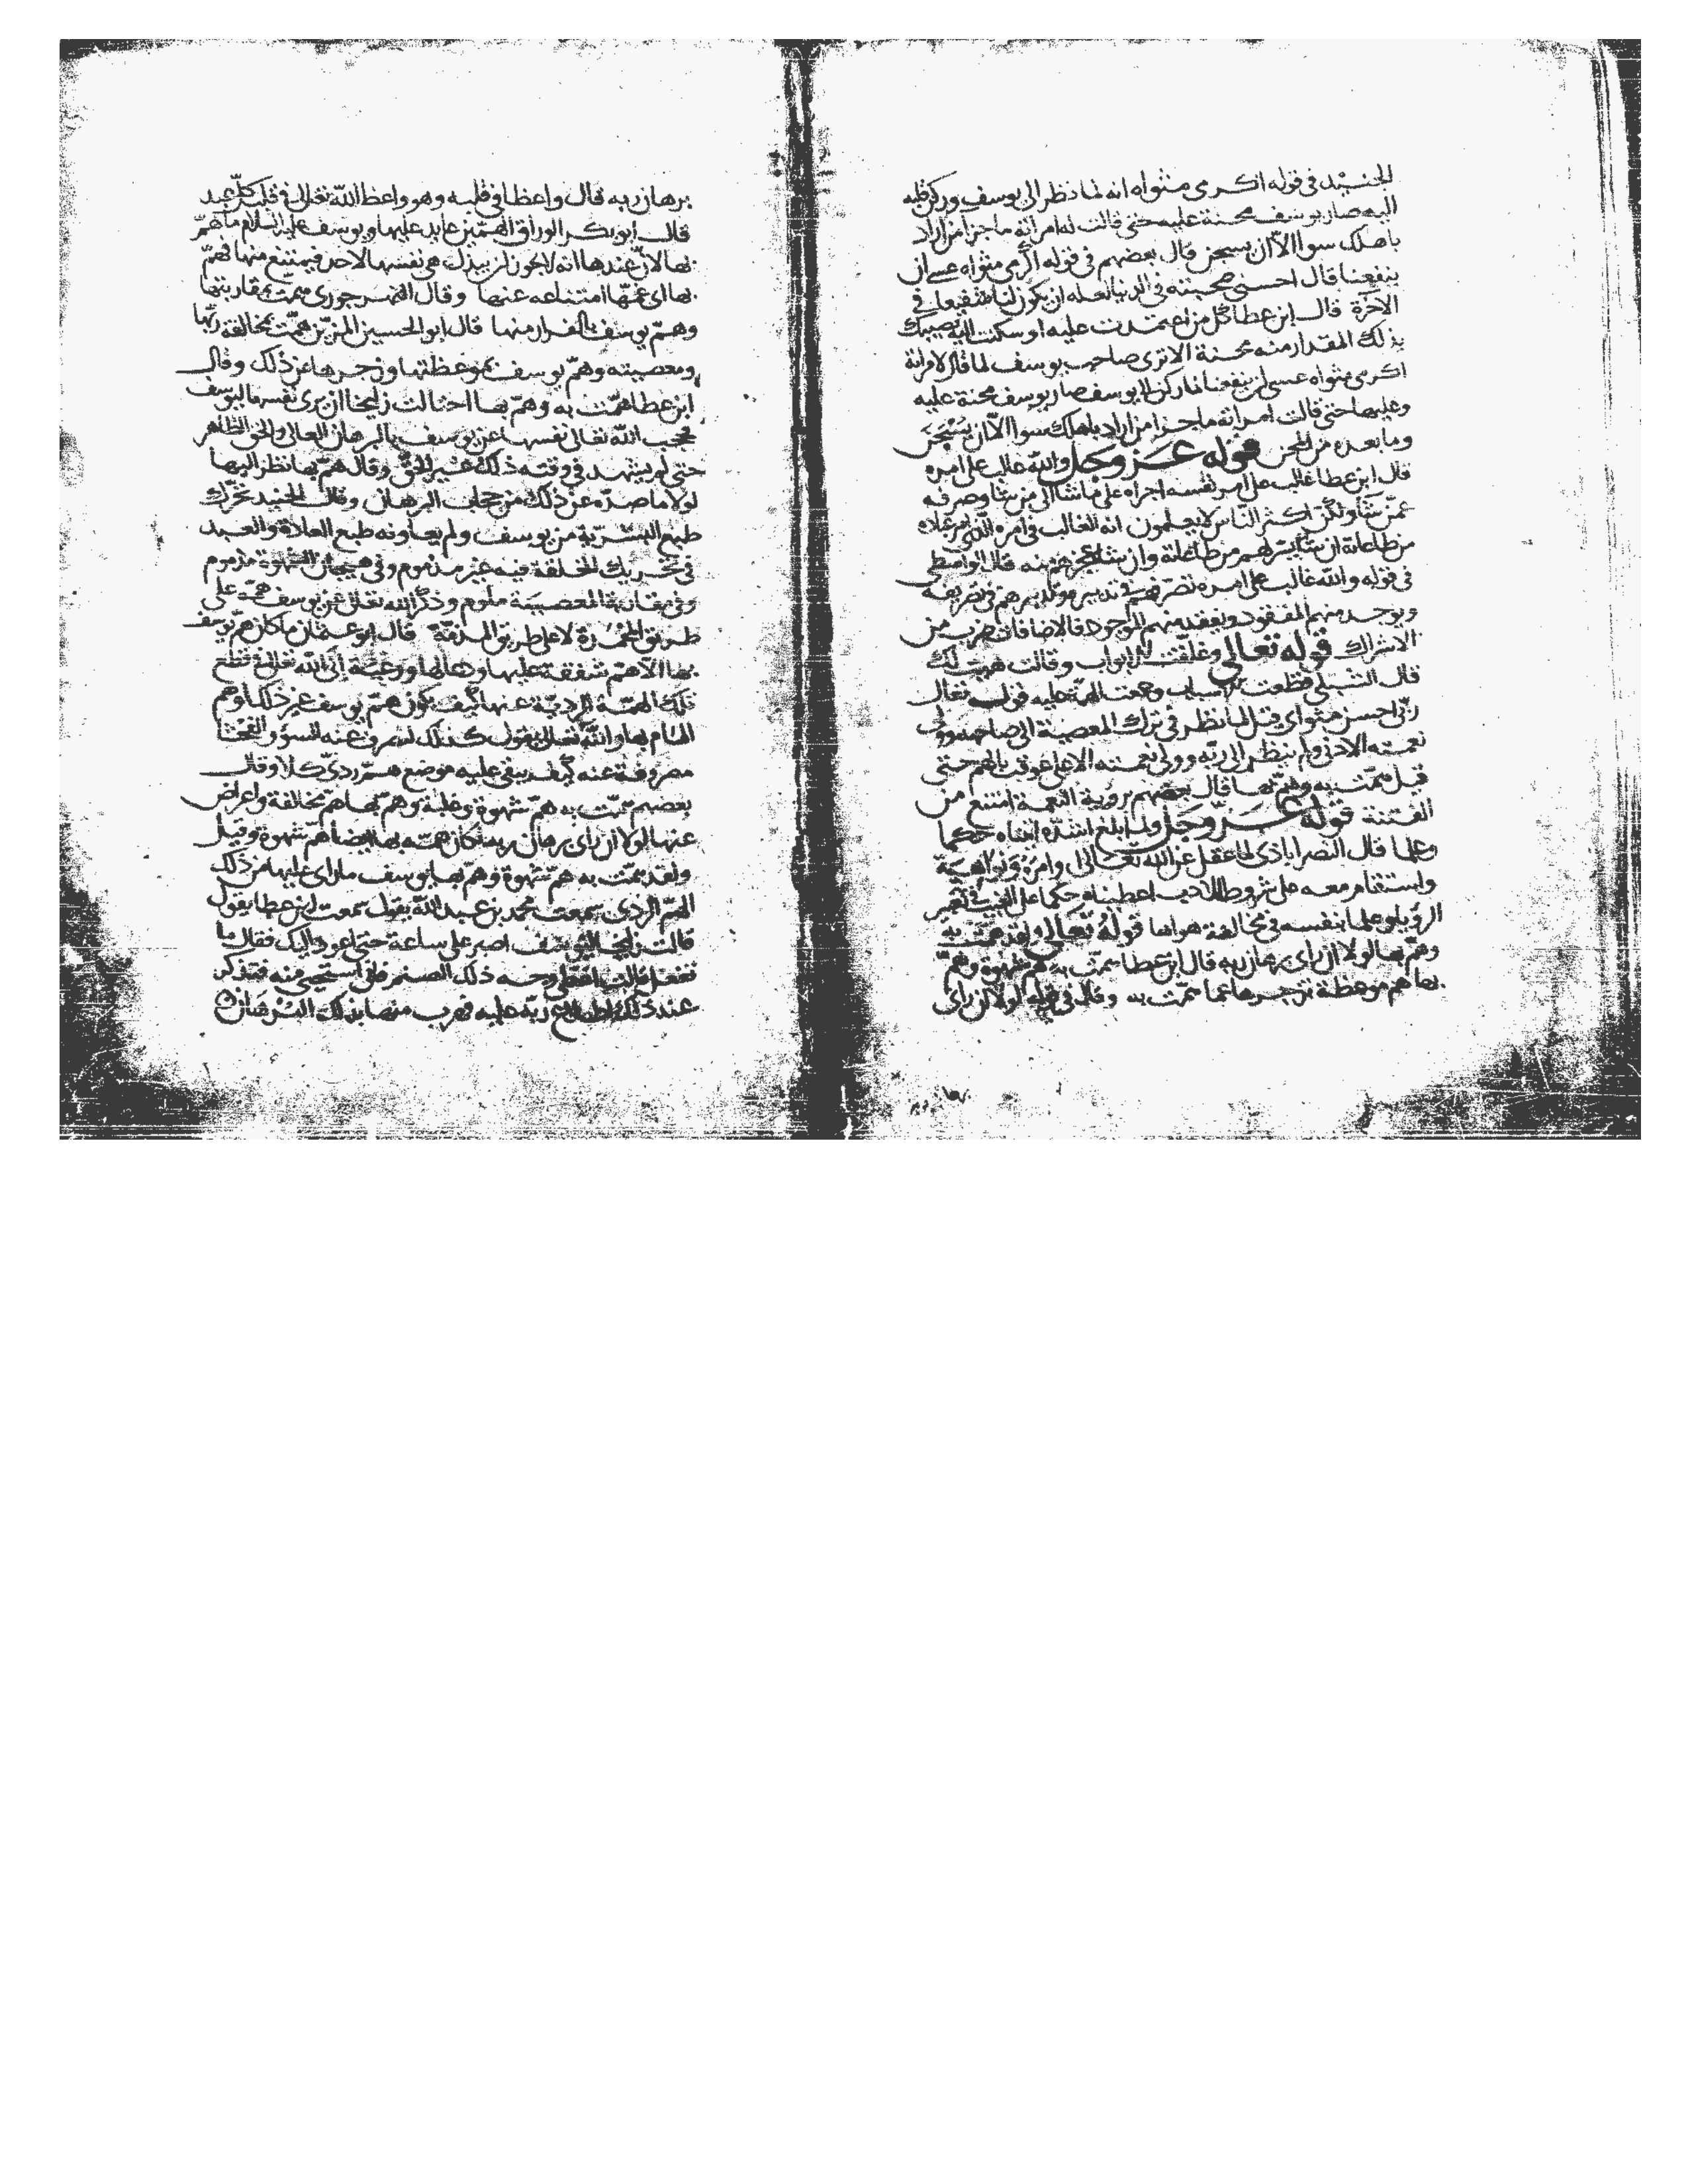 الجنيد في قوله اكرمي مثواه انه لما نظر الى يوسف وركن قلبه
اليه صار يوسف محنة عليه حتى قالت له امرأته ما جزا من اراد
باهلك سوا الا ان يسجن قال بعضهم في قوله اكرمي مثواه عسى ان
ينفعنا قال احسني صحبته في الدنيا لعله ان يكون لنا شفيعا في
الاخرة قال ابن عطا كل من اعتمدت عليه او سكنت اليه يصيبك
بذلك المقدار منه محنة الا ترى صاحب يوسف لما قال لامراته
اكرمي مثواه عسى ان ينفعنا لما ركن الى يوسف صار يوسف محنة عليه
وعليها حتى قالت امراته ما جزا من اراد باهلك سوا الا ان يسجن
وما بعده من المحن قوله عز وجل والله غالب على امره
قال ابن عطا غالب على امر نفسه اجراه على ما شا الى من شا وصرفه
عمن شا ولكن اكثر الناس لا يعلمون انه الغالب في امره
من طاعاته ان شا يسرهم من طاعته وان شا عجزهم منه قال الواسطي
في قوله والله غالب على امره تصرفهم في تدبير
ويوجد منهم المفقود ويفقد منهم الموجود من
الاشراك قوله تعالى وغلقت الابواب وقالت هيت لك
قال الشبلي قطعت الاسباب وجمعت الهمة عليه قوله تعالى
ربي احسن مثواي قيل لما نظر في ترك المعصية الى صاحبه وولي
نعمته الادنى ولم ينظر الى ربه وولي نعمته الاعلى عوقب بالهم حتى
قيل همت به وهم بها قال بعضهم برؤية النعمة امتنع من
الفتنة قوله عز وجل ولما بلغ اشده اتيناه حكما
وعلما قال النصراباذي لما عقل عن الله تعالى اوامره ونواهيه
واستقام معه على شروط الادب اعطيناه حكما على الغيب في تعبير
الرؤيا وعلما بنفسه في مخالفة هواها قوله تعالى ولقد همت به
وهم بها لولا ان راى برهان ربه قال ابن عطا همت به هم شهوة وهم
بها هم موعظة تزجرها عما همت به وقال في قوله لولا ان راى
برهان ربه قال واعظا في قلبه وهو واعظ الله تعالى في قلب كل عبد
قال ابو بكر الوراق الهمين عايد عليها ويوسف عليه السلام ما هم
بها لان عندها انه لا يجوز ان يبذل هي نفسها لاحد فيمتنع منها فهم
بها اي غمها امتناعه عنها وقال النهرجوري همت بمقاربتها
وهم يوسف بالفرار منها قال ابو الحسين المزين همت بمخالفة ربها
ومعصيته وهم يوسف بموعظتها وزجرها عن ذلك وقال
ابن عطا همت به وهم بها احتالت زليخا ان يرى نفسها ليوسف
فحجب الله تعالى نفسها عن يوسف بالبرهان العالي والحق الظاهر
حتى لم يشهد في وقته ذلك غير الحق وقال هم بها نظر اليها
لولا ما صده عن ذلك من حجاب البرهان وقال الجنيد تحرك
طبع البشرية من يوسف ولم يعاونه طبع العادة والعبد
في تحريك الخلقة فيه غير مذموم وفي هيجان الشهوة مذموم
وفي مقاربة المعصية ملوم وذكر الله تعالى عن يوسف همه على
طريق المحمدة لا على طريق المذمة قال ابو عثمان ما كان هم يوسف
بها الا هم شفقة عليها قطع
تلك الهمة الردية عنها كيف يكون هم يوسف غير ذلك او هم
والله تعالى يقول كذلك لنصرف عنه السوء والفحشا
مصروفة عنه كيف يبقى عليه موضع هم ردي كلا وقال
بعضهم همت به هم شهوة وغلبة وهم بها هم مخالفة واعراض
عنها لولا ان راى برهان ربه لكان همته بها ايضا هم شهوة وقيل
ولقد همت به هم شهوة وهم بها يوسف ما راى عليها من ذلك
الهم الردي سمعت محمد بن عبد الله يقول سمعت ابن عطا يقول
قالت زليخا ليوسف اصبر علي ساعة حتى اعود اليك فقال ما
تفعل قالت اغطي وجه ذلك الصنم فاني استحيي منه فتذكر
عند ذلك اطلاع ربه عليه فهرب منها بذلك البرهان